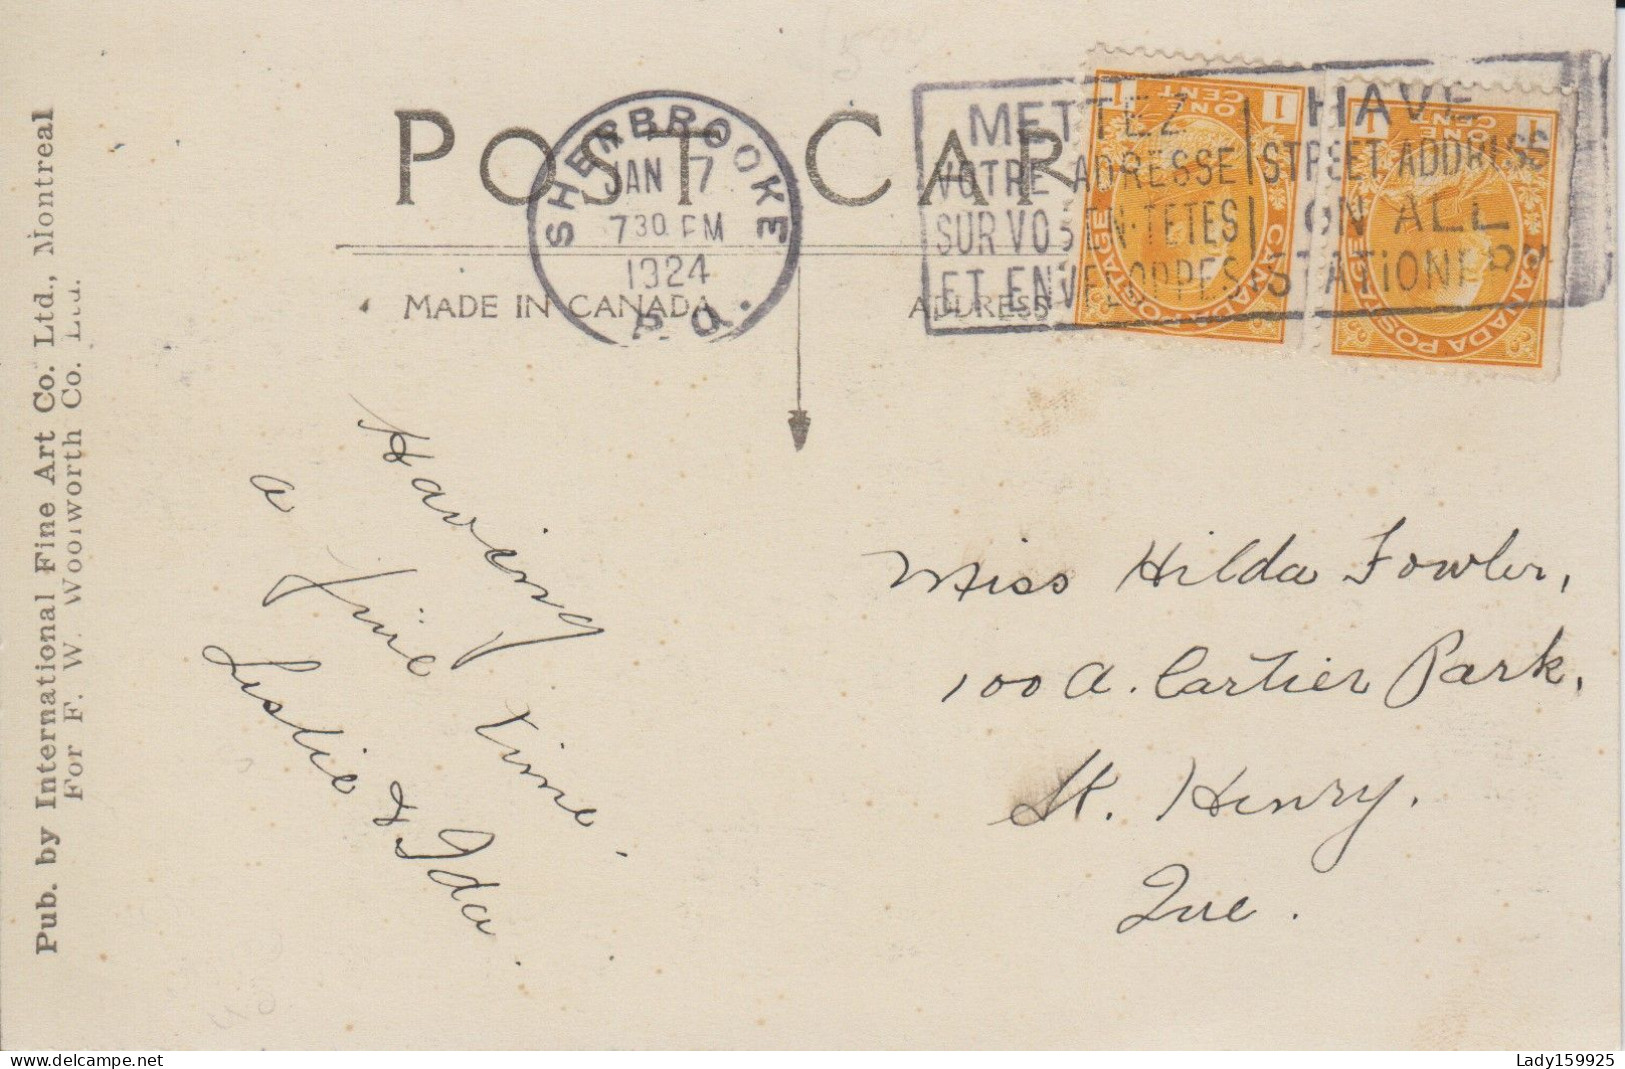 POST CAR
SHERBROOKE
JAN 7
730 PM
1924
P.Q.
METTEZ
VOTRE ADRESSE
SUR VOS EN-TETES
ET ENVELOPPES
HAVE
STREET ADDRESS
ON ALL
STATIONERY
1 ONE CENT 1
CANADA POSTAGE
1 ONE CENT 1
CANADA POSTAGE
MADE IN CANADA
ADDRESS
Pub. by International Fine Art Co. Ltd., Montreal
For F. W. Woolworth Co. Ltd.
Having
a fine time.
Leslie & Ida.
Miss Hilda Fowler,
100 A. Cartier Park,
St. Henry.
Que.
delcampe.net
Lady159925